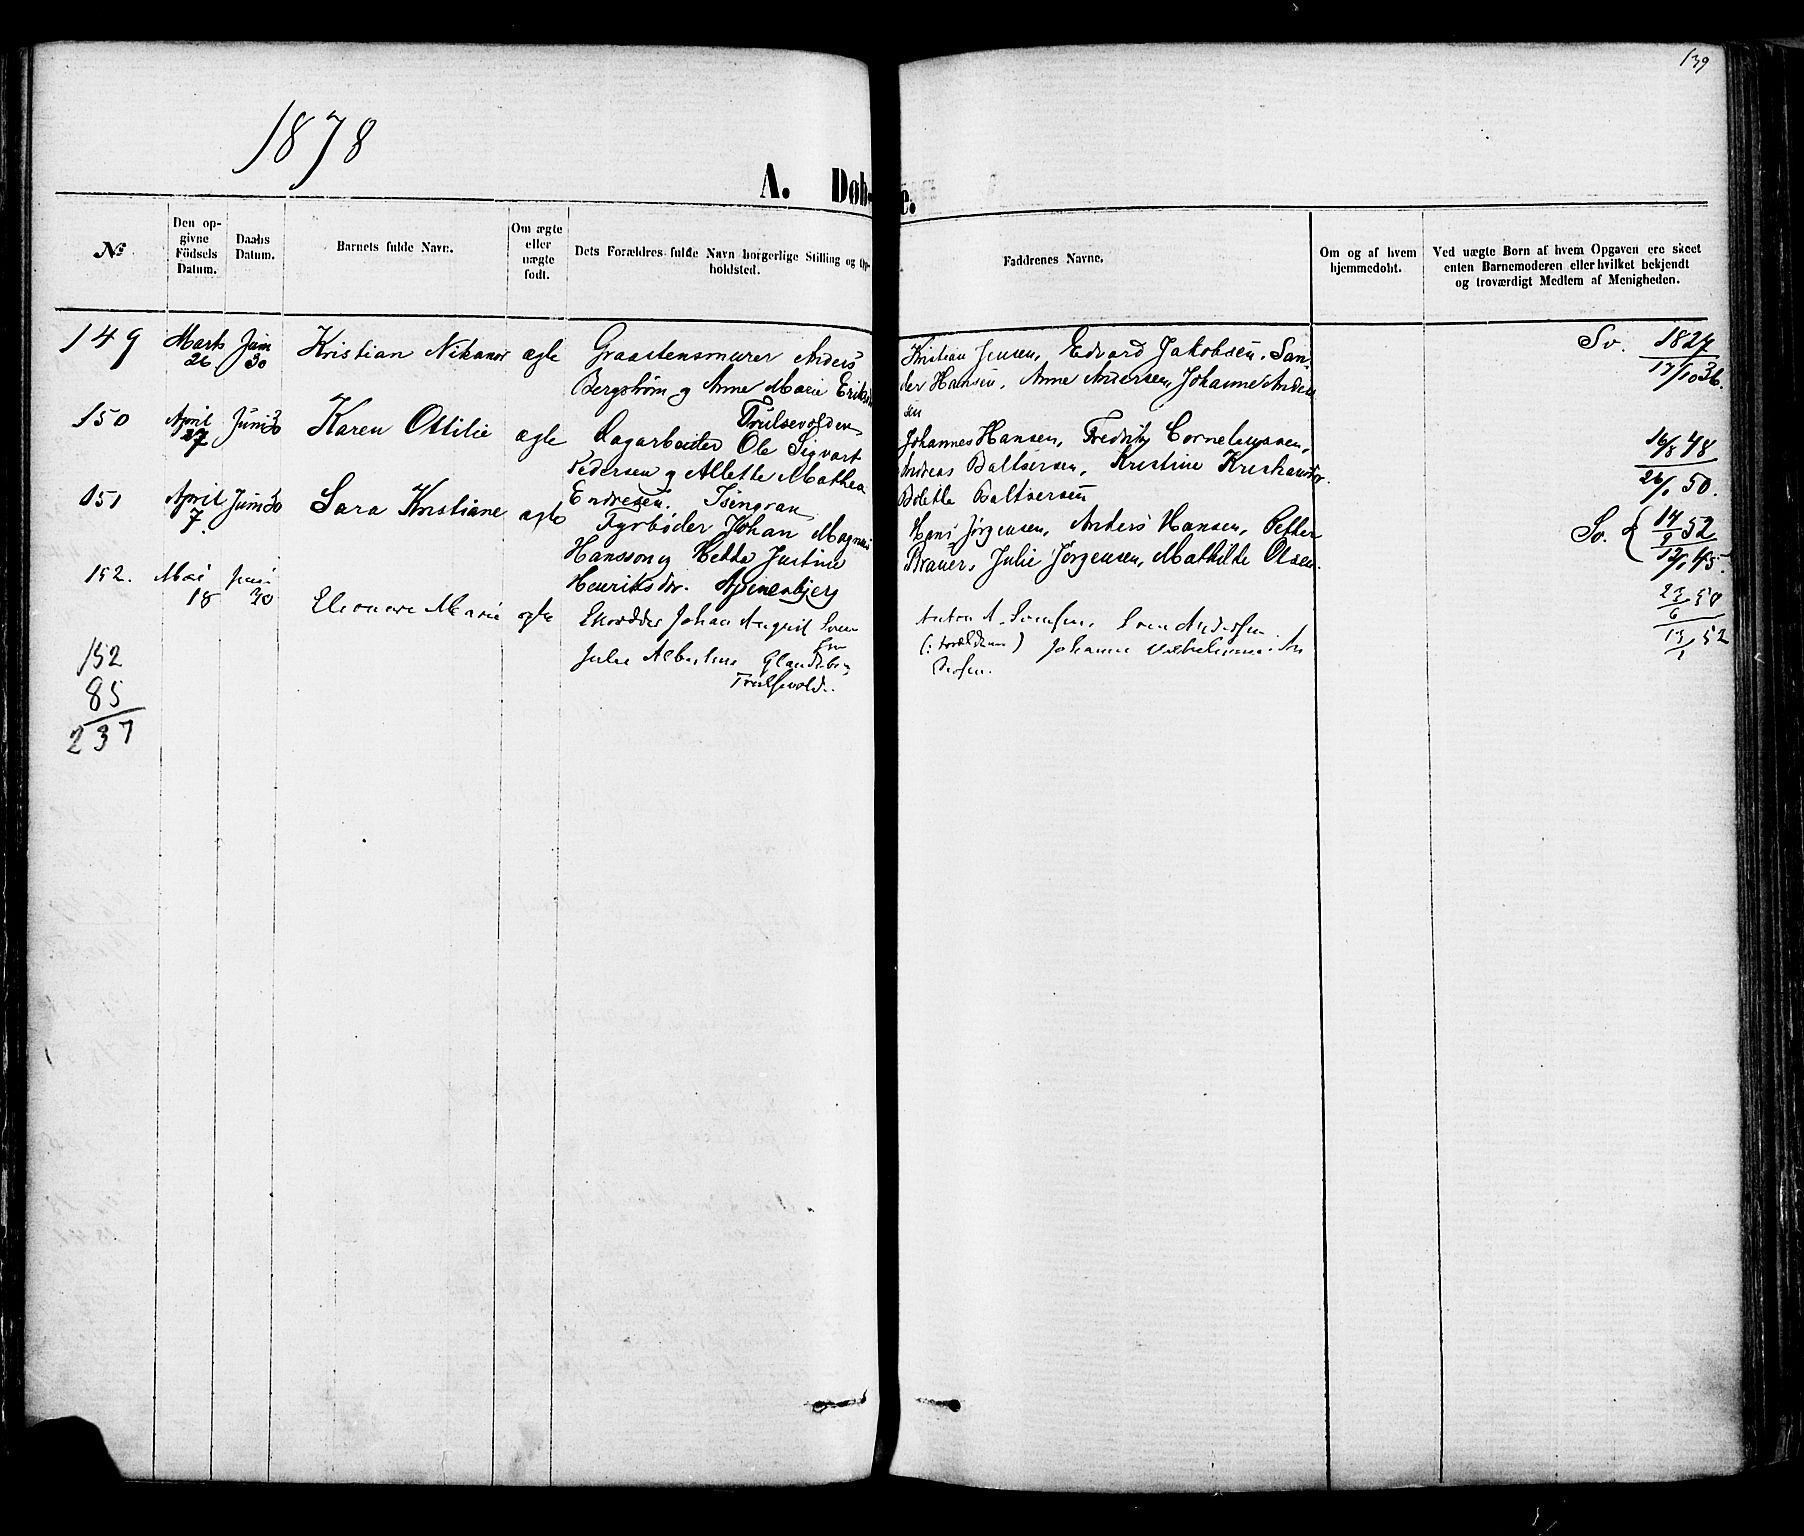 139
1878
A. Døb-
e.
№
Den op-
givne
Födsels
Datum.
Daabs
Datum.
Barnets fulde Navn.
Om ægte
eller
uægte
født.
Dets Forældres fulde Navn borgerlige Stilling og Op-
holdsted.
Faddrenes Navne.
Om og af hvem
hjemmedøbt.
Ved uægte Børn af hvem Opgaven ere skeet
enten Barnemoderen eller hvilket bekjendt
og troværdigt Medlem af Menigheden.
149 Marts 26 Juni 30 Kristian Nikanor ægte Graastensmurer Anders
Bergstrøm og Anne Marie Eriks
Trulsevolden
Kristian Jensen, Edvard Jakobsen, San-
der Hansen, Anne Andersen, Johanne Ander
sen
Sv. 1827
17/10 36.
150 April 27 Juni 30 Karen Ottilie ægte Dagarbeider Ole Sigvart
Pedersen og Allette Mathea
Endresen. Isingran
Johannes Hansen, Fredrik Corneliussen,
Andreas Baltsersen, Kristine Kristiansdr.
Bolette Baltsersen
16/8 48
26/1 50.
151 April 7. Juni 30 Sara Kristiane ægte Fyrbøder Johan Magnus
Hansson og Hedda Justine
Henriksdr. Apenesbjerg
Hans Jørgensen, Anders Hansen, Petter
Brauer, Julie Jørgensen, Mathilde Olsen.
Sv. { 14/9 52
12/1 45.
152. Mai 18 Juni 30 Eleonore Marie ægte Skrædder Johan August Sven
sen
Julie Albertine
Trulsevold.
Anton A. Svensen, Sven Andersen
(: Forældrene) Johanne Vilhelmine An
dersen.
23/6 50
13/1 52
152
85
237